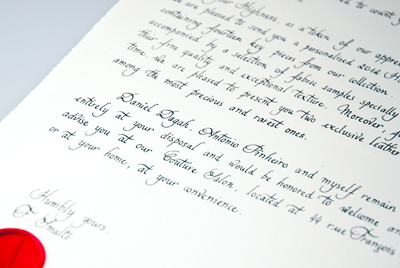 to count y
are pleased to send you a personalised 2012 H
Your Highness, as a token of our appre
containing fourteen key pieces from our collection.
accompanied by a selection of fabric samples specially
their fine quality and exceptional texture. Moreover, f
time, we are pleased to present you two exclusive leather
among the most precious and rarest ones.
Daniel Dagah, Antonio Pinheiro and myself remain
entirely at your disposal and would be honored to welcome an
advise you at our Couture Salon, located at 44 rue François
or at your home, at your convenience.
Humbly yours,
F Smalto